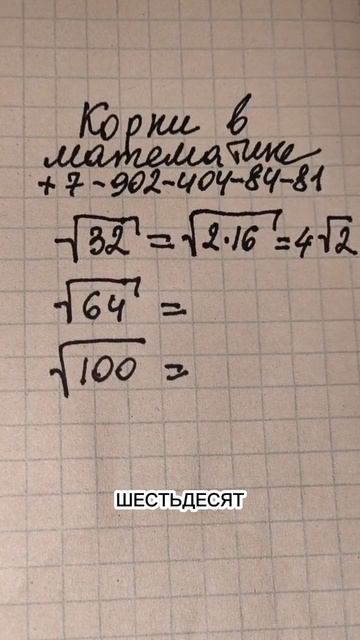 Корни в
математике
+7-902-404-84-81
√32 = √2·16 = 4√2
√64 =
√100 =
ШЕСТЬДЕСЯТ